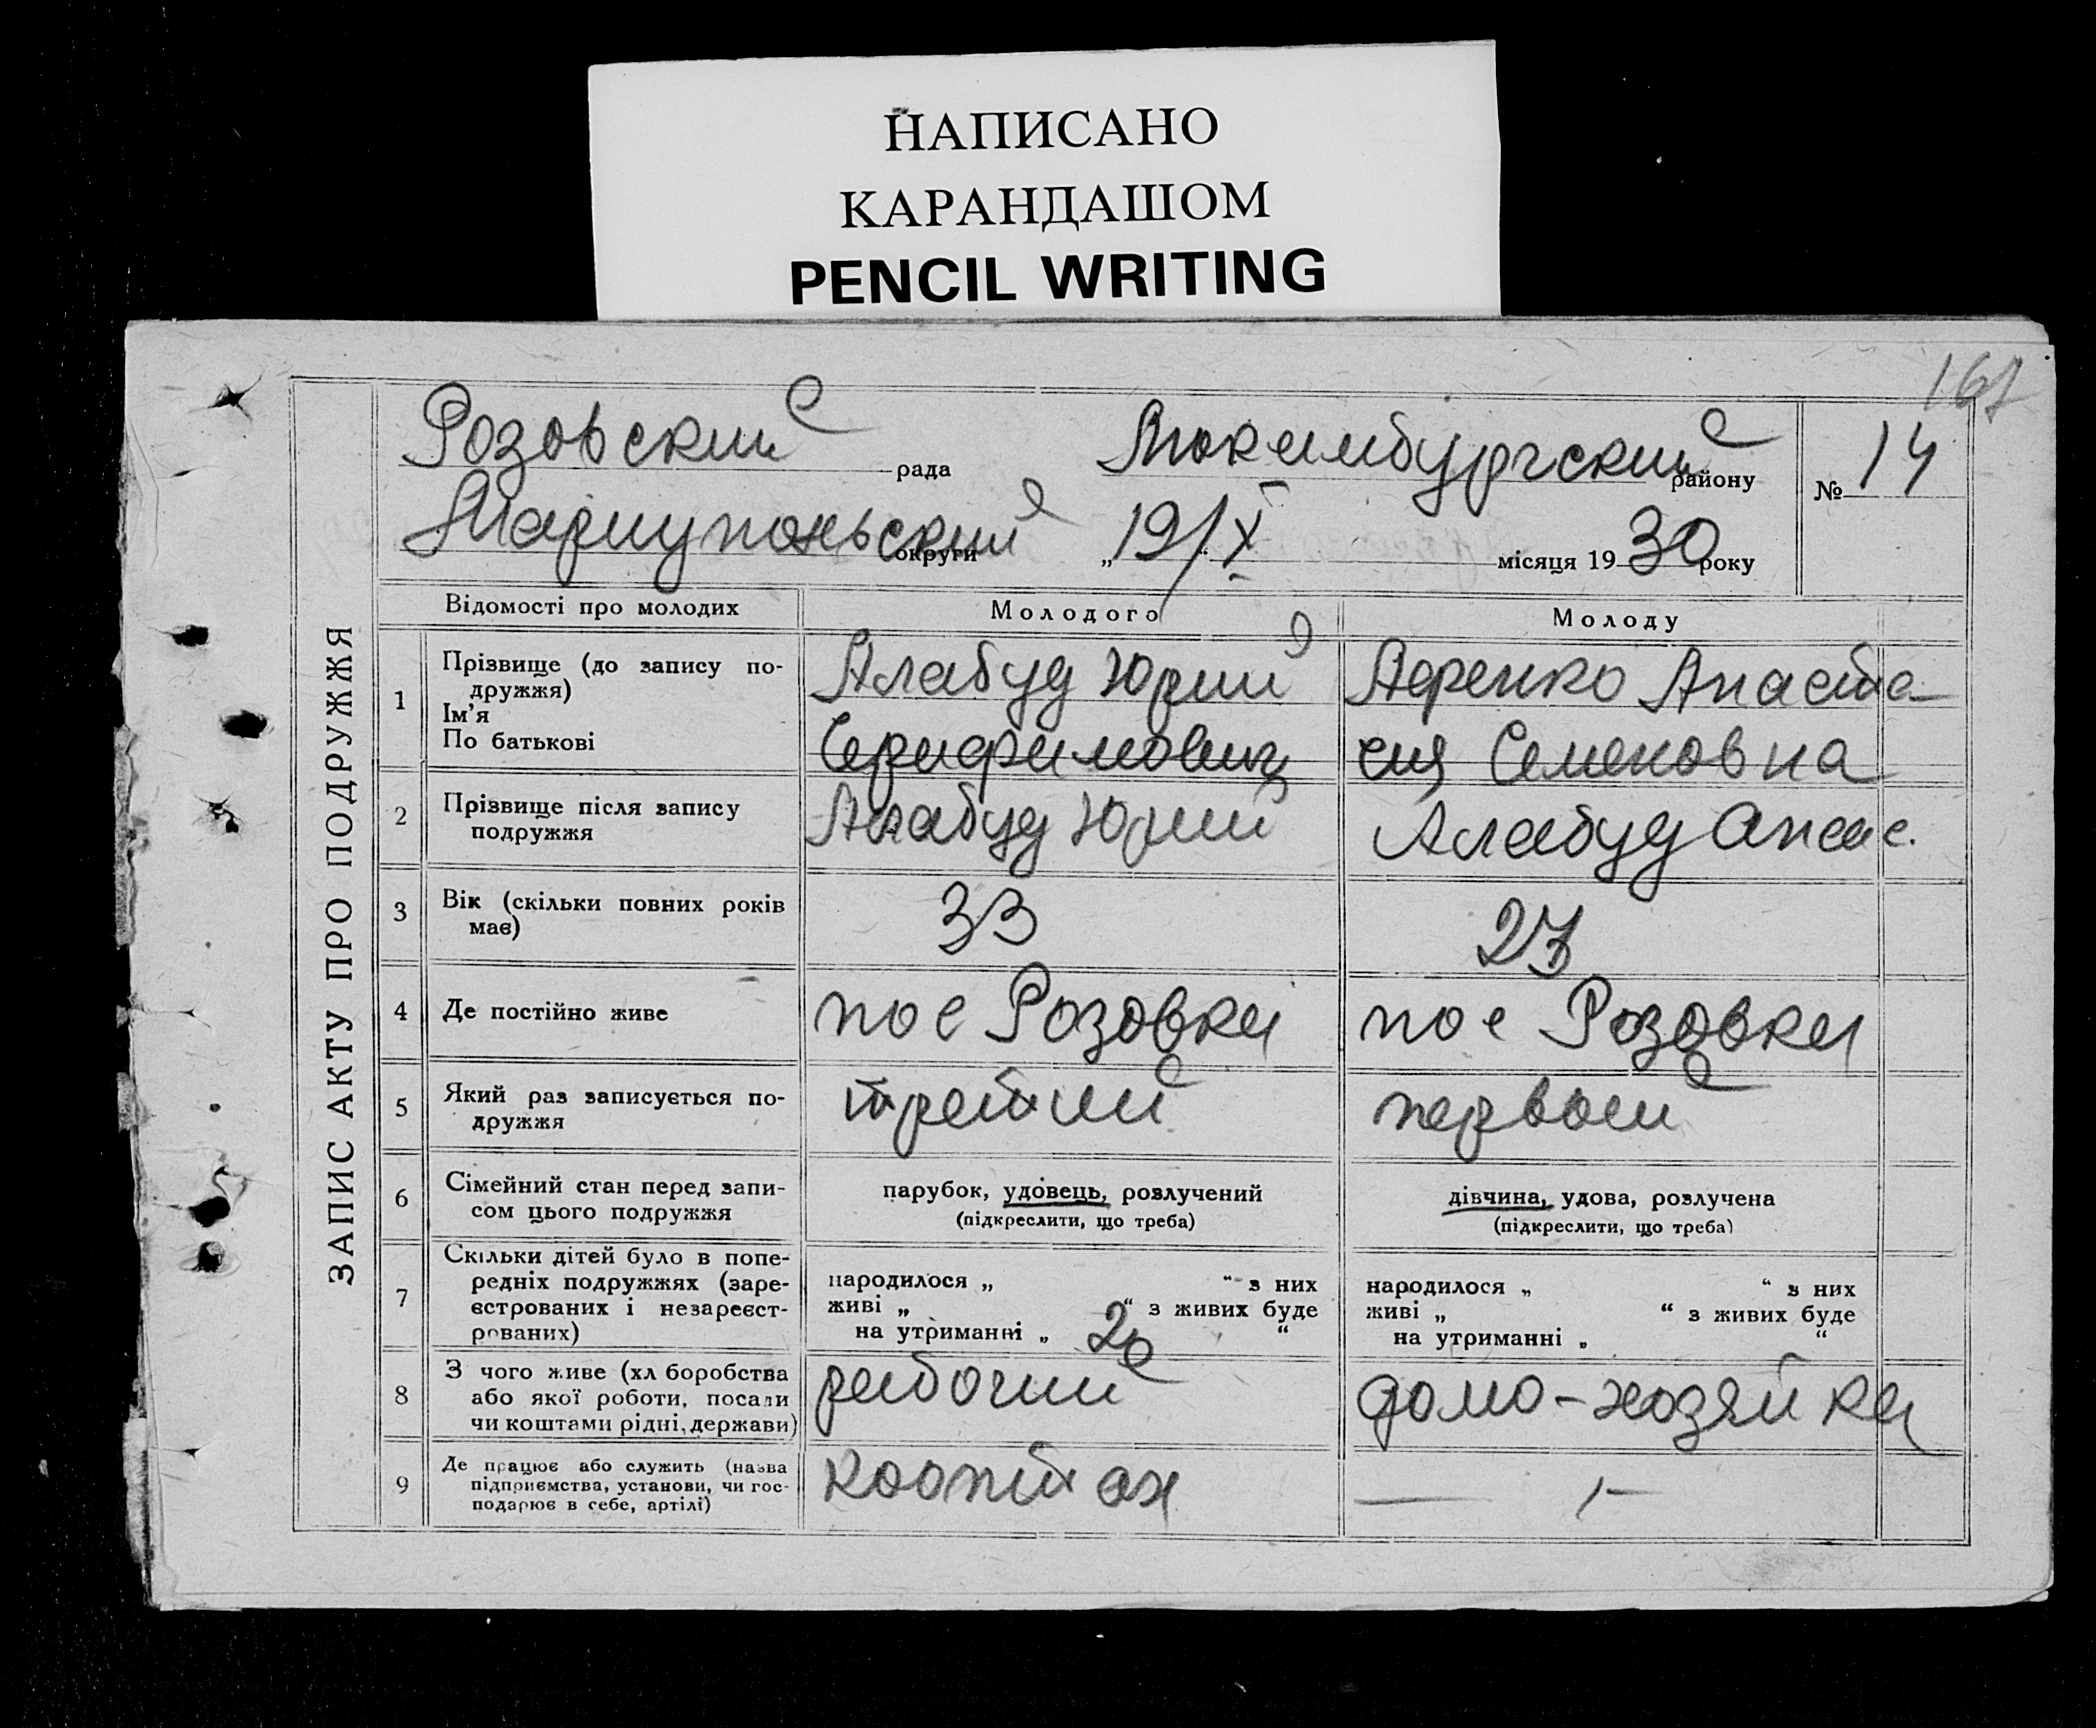 НАПИСАНО
КАРАНДАШОМ
PENCIL WRITING
167
Розовский рада Люксембургский району № 14
Мариупольский округи „19/X“ місяця 1930 року
ЗАПИС АКТУ ПРО ПОДРУЖЖЯ
Відомості про молодих Молодого Молоду
1 Прізвище (до запису по-
дружжя)
Ім'я
По батькові
Алабуд Юрий
Серафимович
Анаста
сия Семеновна
2 Прізвище після запису
подружжя
Алабуд Юрий
Алабуд Анас.
3 Вік (скільки повних років
має)
33
27
4 Де постійно живе
пос Розовка
пос Розовка
5 Який раз записується по-
дружжя
третий
первый
6 Сімейний стан перед запи-
сом цього подружжя
парубок, удовець, розлучений
(підкреслити, що треба)
дівчина, удова, розлучена
(підкреслити, що треба)
7 Скільки дітей було в попе-
редніх подружжях (заре-
єстрованих і незареєст-
рованих)
народилося „ “ з них
живі „ “ з живих буде
на утриманні „ 2 “
народилося „ “ з них
живі „ “ з живих буде
на утриманні „ “
8 З чого живе (хліборобства
або якої роботи, посади
чи коштами рідні, держави)
рабочий
домо-хозяйка
9 Де працює або служить (назва
підприємства, установи, чи гос-
подарює в себе, артілі)